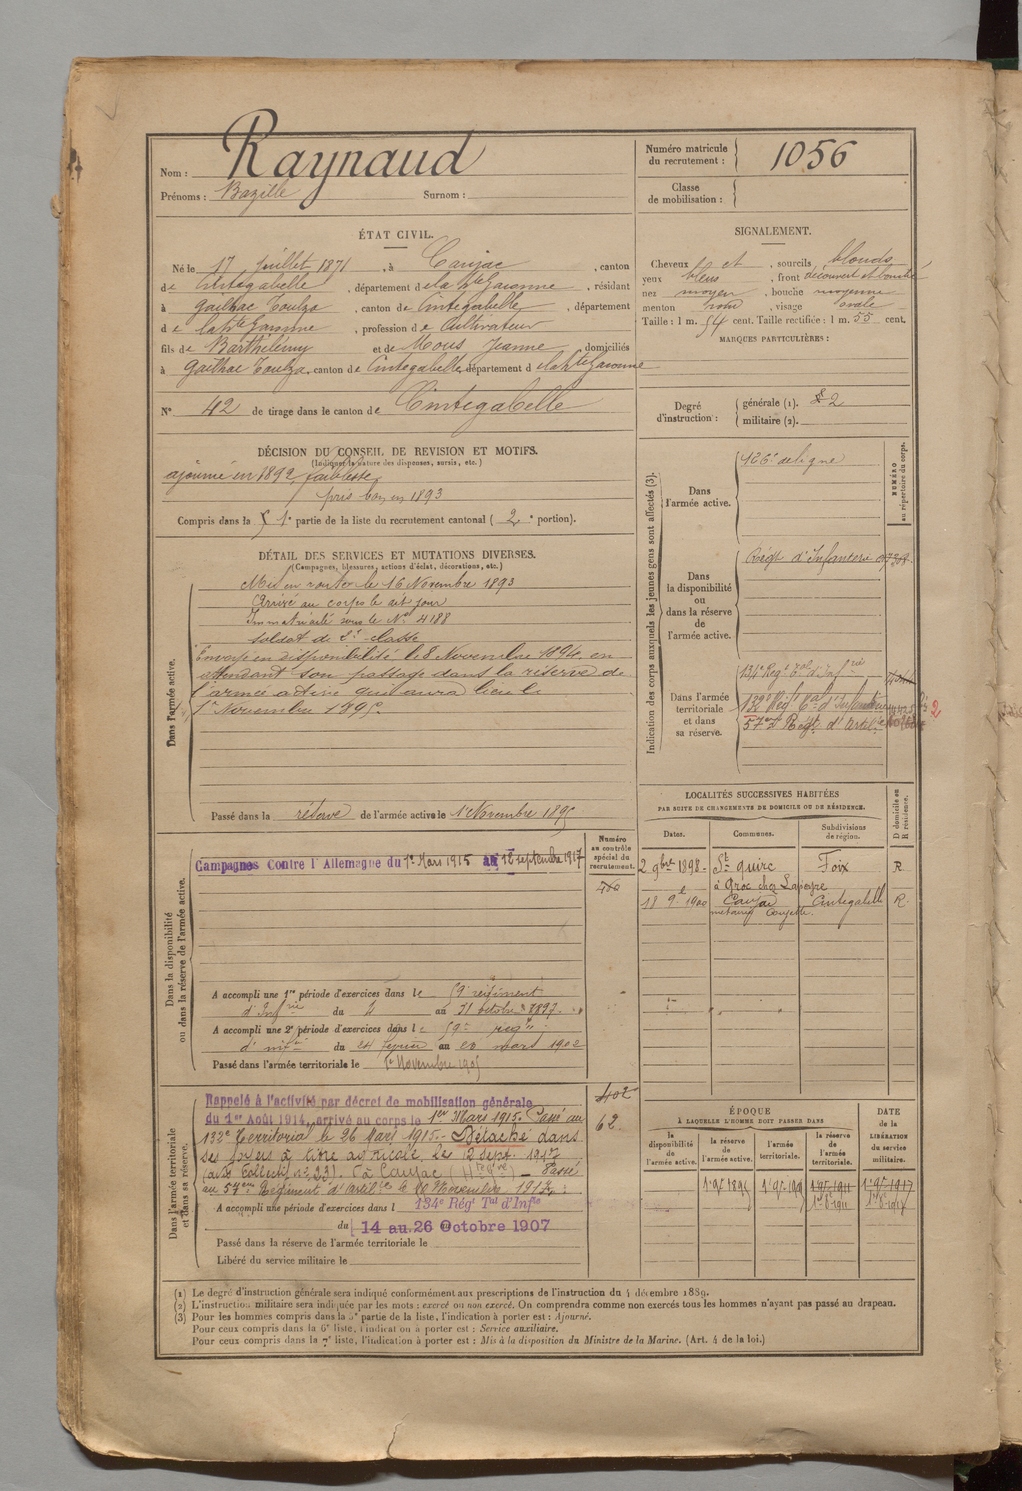 Nom : Raynaud
Prénoms : Bazille Surnom :
Numéro matricule du recrutement : 1056
Classe de mobilisation :
ÉTAT CIVIL.
Né le 17 Juillet 1871, à Caujac, canton
de Cintegabelle, département de la Hte Garonne, résidant
à Gailhac Toulza, canton de Cintegabelle, département
de la Hte Garonne, profession de Cultivateur
fils de Barthélémy et de Mous Jeanne, domiciliés
à Gailhac Toulza, canton de Cintegabelle, département d e la Hte Garonne
N° 42 de tirage dans le canton de Cintegabelle
SIGNALEMENT.
Cheveux et, sourcils blonds
yeux bleus, front découvert et bombé
nez moyen, bouche moyenne
menton rond, visage ovale
Taille : 1 m. 54 cent. Taille rectifiée : 1 m. 55 cent.
MARQUES PARTICULIÈRES :
Degré d'instruction : générale (1). 2
militaire (2).
DÉCISION DU CONSEIL DE REVISION ET MOTIFS.
(Indiquer la nature des dispenses, sursis, etc.)
ajourné en 1892 faiblesse
pris bon en 1893
Compris dans la 1e partie de la liste du recrutement cantonal (2e portion).
DÉTAIL DES SERVICES ET MUTATIONS DIVERSES.
(Campagnes, blessures, actions d'éclat, décorations, etc.)
Dans l'armée active.
Mis en route le 16 Novembre 1893
Arrivé au corps le dit jour
Immatriculé sous le No 4188
soldat de 2e classe
Envoyé en disponibilité le 8 Novembre 1894 en
attendant son passage dans la réserve de
l'armée active qui aura lieu le
1er Novembre 1895.
Passé dans la réserve de l'armée active le 1er Novembre 1895
Indication des corps auxquels les jeunes gens sont affectés (3).
NUMÉRO au répertoire du corps.
Dans l'armée active.
126e de ligne
Dans la disponibilité ou dans la réserve de l'armée active.
Régt d'Infanterie
Dans l'armée territoriale et dans sa réserve.
134e Régt Tal d'Infrie
132e Régt Tal d'Infanterie
57e Régt d'Artie
2
LOCALITÉS SUCCESSIVES HABITÉES
PAR SUITE DE CHANGEMENTS DE DOMICILE OU DE RÉSIDENCE.
Dates. Communes. Subdivisions de région. D domicile ou R résidence.
2 9bre 1898 St Quirc Foix R.
à Groc chez Lapeyre
18 9e 1900 Caujac Cintegabelle R.
Dans la disponibilité ou dans la réserve de l'armée active.
Numéro au contrôle spécial du recrutement.
Campagnes Contre l'Allemagne du 1er Mars 1915 au 12 septembre 1917
A accompli une 1re période d'exercices dans le 59e régiment
d'Infrie du 4 au 31 octobre 1897.
A accompli une 2e période d'exercices dans le 59e
d'infie du 24 février au 20 mars 1902
Passé dans l'armée territoriale le 1er Novembre 1905
Dans l'armée territoriale et dans sa réserve.
402
62
Rappelé à l'activité par décret de mobilisation générale
du 1er Août 1914, arrivé au corps le 1er Mars 1915. Passé au
132e Territorial le 26 Mars 1915. Détaché dans
ses foyers à titre agricole, le 12 Sept. 1917
(avis Collectif no 231). à Caujac (Hte Gne) - Passé
au 57e Régiment d'Artie le 20 Novembre 1917
A accompli une période d'exercices dans l 134e Régt Tal d'Infie
du 14 au 26 Octobre 1907
Passé dans la réserve de l'armée territoriale le
Libéré du service militaire le
ÉPOQUE
À LAQUELLE L'HOMME DOIT PASSER DANS
DATE de la LIBÉRATION du service militaire.
la disponibilité de l'armée active. la réserve de l'armée active. l'armée territoriale. la réserve de l'armée territoriale.
1er 9e 1895 1er 9e 1905 1er 9e 1911 1er 9e 1917
(1) Le degré d'instruction générale sera indiqué conformément aux prescriptions de l'instruction du 4 décembre 1889.
(2) L'instruction militaire sera indiquée par les mots : exercé ou non exercé. On comprendra comme non exercés tous les hommes n'ayant pas passé au drapeau.
(3) Pour les hommes compris dans la 5e partie de la liste, l'indication à porter est : Ajourné.
Pour ceux compris dans la 6e liste, l'indication à porter est : Service auxiliaire.
Pour ceux compris dans la 7e liste, l'indication à porter est : Mis à la disposition du Ministre de la Marine. (Art. 4 de la loi.)